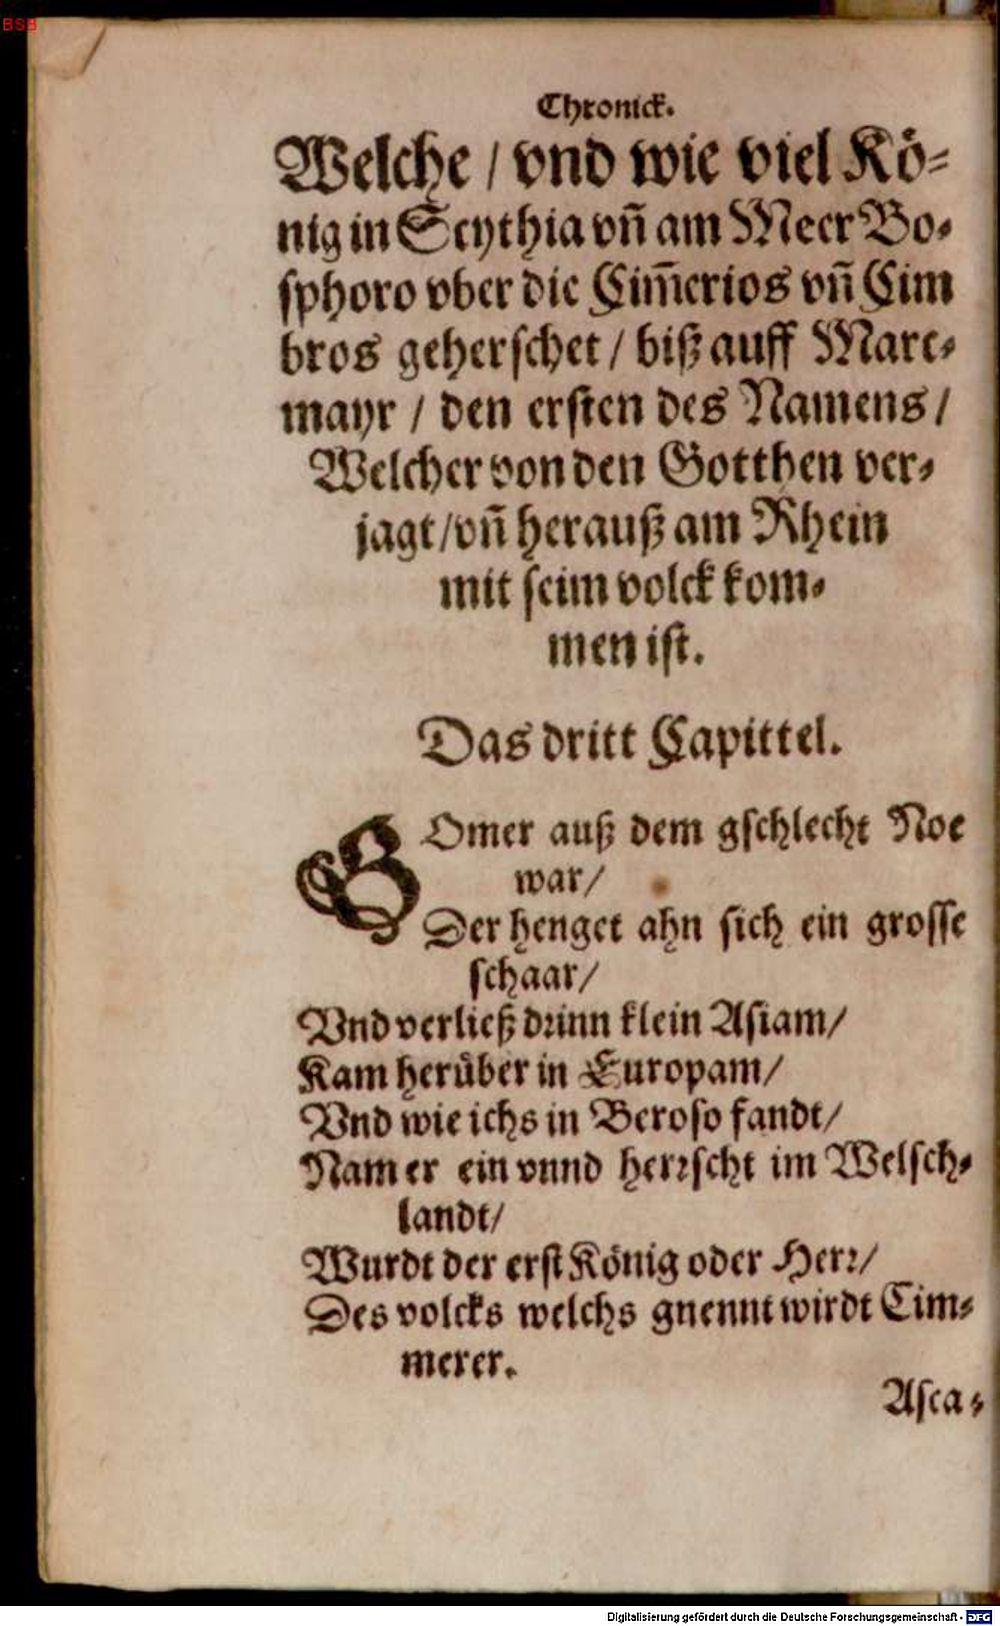 BSB
Chronick.
Welche / vnd wie viel Kö-
nig in Scythia vñ am Meer Bo-
sphoro vber die Cim̃erios vñ Cim
bros geherschet / biß auff Marc-
mayr / den ersten des Namens /
Welcher von den Gotthen ver-
jagt / vñ herauß am Rhein
mit seim volck kom-
men ist.
Das dritt Capittel.
GOmer auß dem gschlecht Noe
war /
Der henget ahn sich ein grosse
schaar /
Vnd verließ drinn klein Asiam /
Kam herüber in Europam /
Vnd wie ichs in Beroso fandt /
Nam er ein vnnd herrscht im Welsch-
landt /
Wurdt der erst König oder Herr /
Des volcks welchs gnennt wirdt Cim-
merer.
Asca-
Digitalisierung gefördert durch die Deutsche Forschungsgemeinschaft - DFG